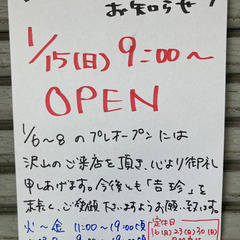 お知らせ
1/15(日) 9:00〜
OPEN
1/6〜8 のプレオープンには
沢山のご来店を頂き、心より御礼
申しあげます。今後も「吉珍」を
末永く、ご笑顔下さいますようお願い致します。
火〜金 11:00〜19:00頃
定休日
16(月)23(月)30(月)